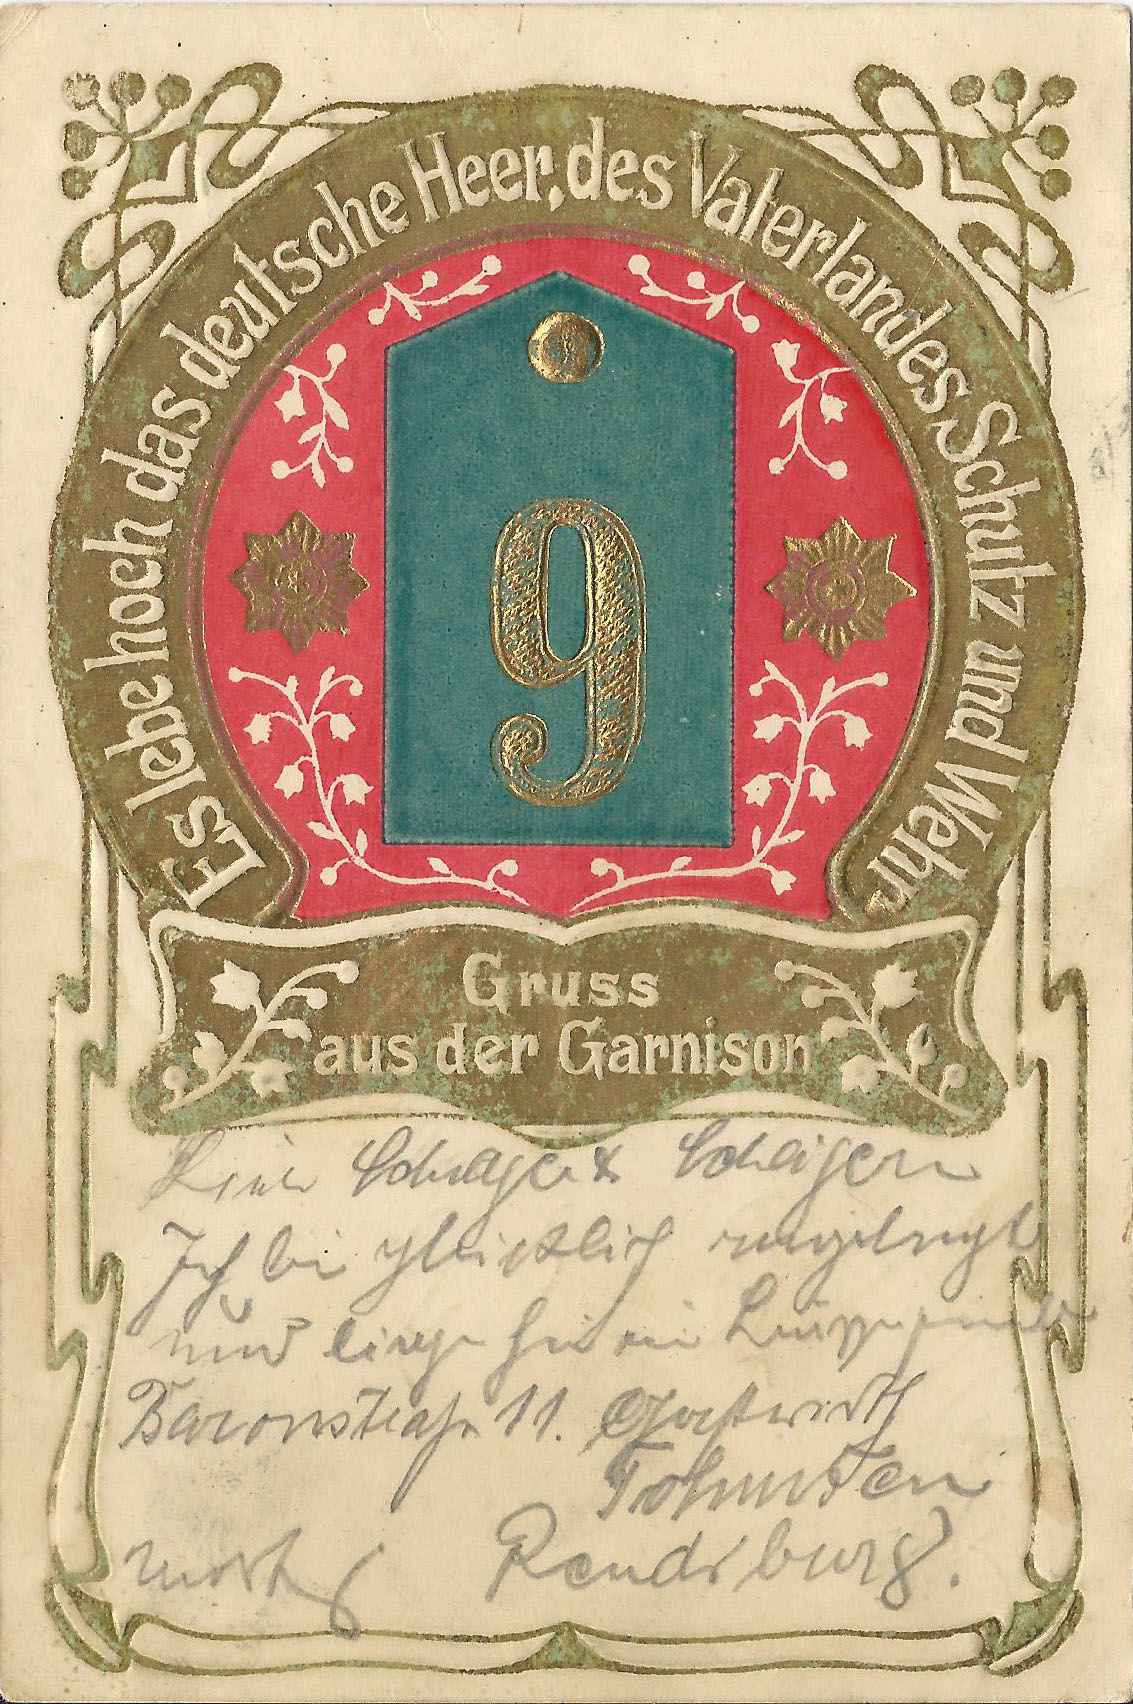 Es lebe hoch das deutsche Heer, des Vaterlandes Schutz und Wehr.
9
Gruss
aus der Garnison
Schwager & Schwägerin
Ich bin glücklich angelangt
und liege hier in
Baronstraße 11. Gastwirth
Rendsburg.